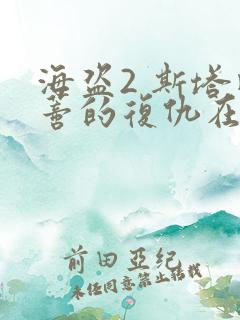 海盗2 斯塔
善的復仇在
前田亞紀
未经同意禁止转载